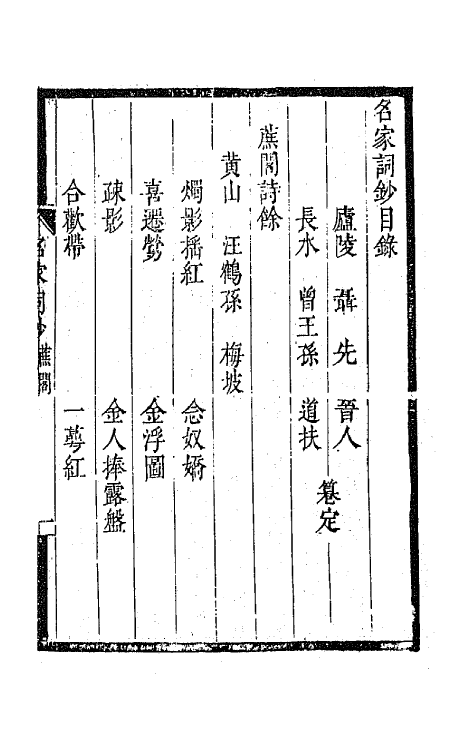 名家詞鈔目錄
廬陵 聶先 晉人
長水 曾王孫 道扶
纂定
蕉閣詩餘
黄山 汪鶴孫 梅坡
燭影搖紅 念奴嬌
喜遷鶯 金浮圖
疎影 金人捧露盤
合歡帶 一萼紅
名家詞鈔 蕉閣